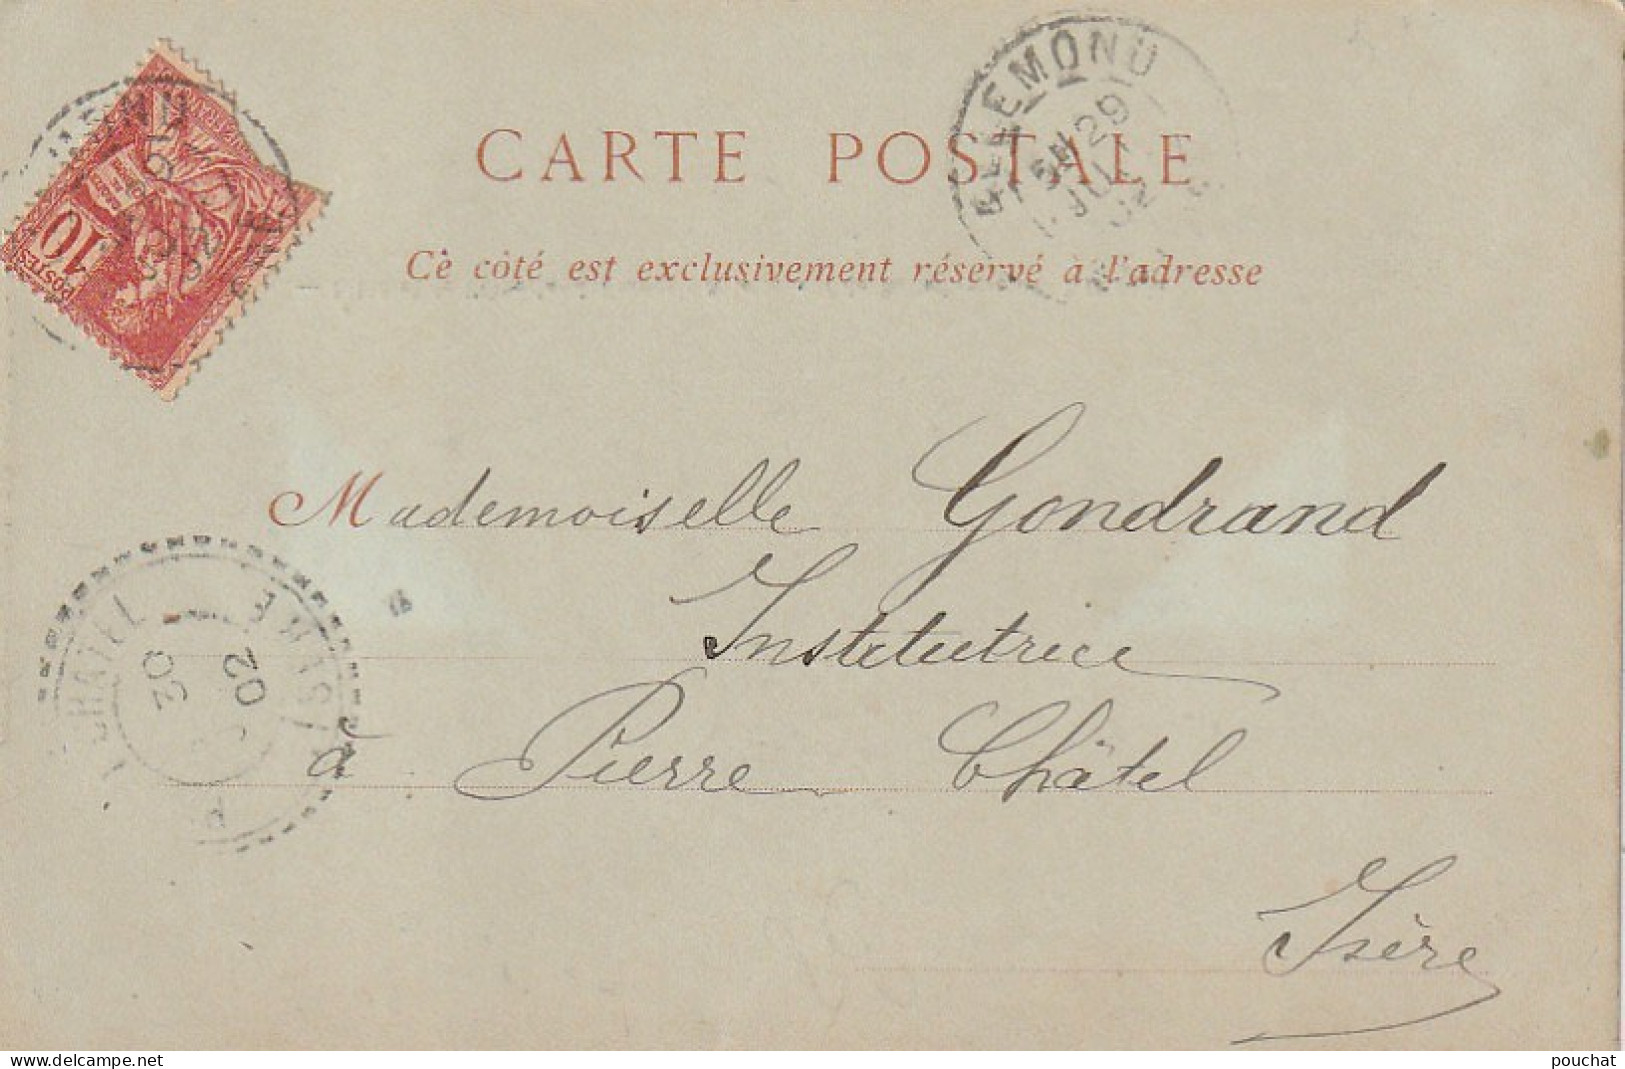 CARTE POSTALE
Ce côté est exclusivement réservé à l'adresse
10
POSTES
ALLEMOND
29
JUIL
02
Mademoiselle Gondrand
Institutrice
à Pierre Châtel
Isère
CHATEL
ISÈRE
20
02
www.delcampe.net
pouchat